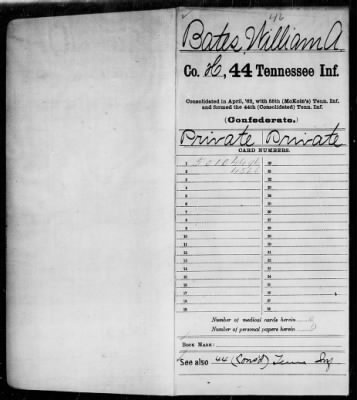 46
Bates, William A.
Co. H, 44 Tennessee Inf.
Consolidated in April, '62, with 55th (McKoin's) Tenn. Inf.
and formed the 44th (Consolidated) Tenn. Inf.
(Confederate.)
Private Private
CARD NUMBERS.
1 20
2 21
3 22
4 23
5 24
6 25
7 26
8 27
9 28
10 29
11 30
12 31
13 32
14 33
15 34
16 35
17 36
18 37
19 38
Number of medical cards herein 0
Number of personal papers herein 0
BOOK MARK:
See also 44 (Consd) Tenn Inf